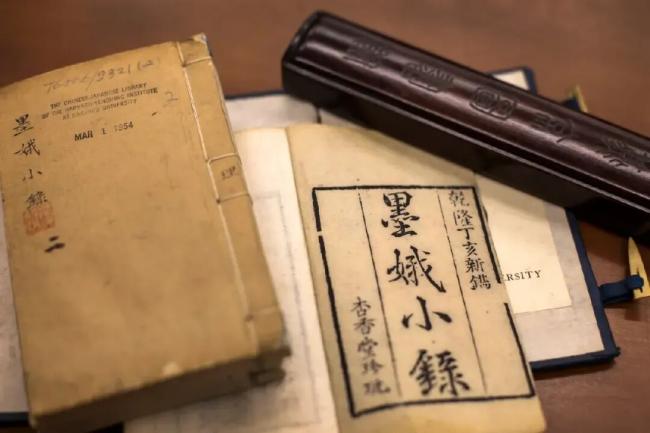 THE CHINESE-JAPANESE LIBRARY
OF THE HARVARD-YENCHING INSTITUTE
AT HARVARD UNIVERSITY
MAR 1 1954
2
墨娥小錄
二
乾隆丁亥新鐫
墨娥小錄
杏香堂珍
ERSITY